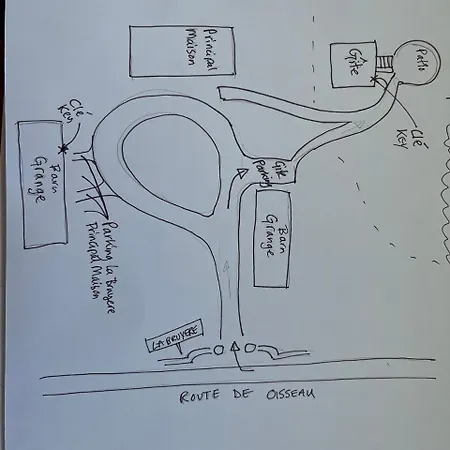 Principal
Maison
Gîte
Patio
Clé
Key
Clé
Key
Barn
Grange
Gite
Parking
Barn
Grange
Parking La Bruyere
Principal Maison
LA BRUYERE
ROUTE DE OISSEAU